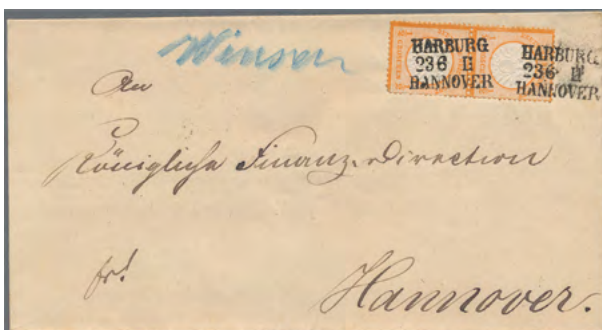 Winsen
HARBURG
236 II
HANNOVER
HARBURG
236 II
HANNOVER
An
Königliche Finanz-Direction
fr!
Hannover.